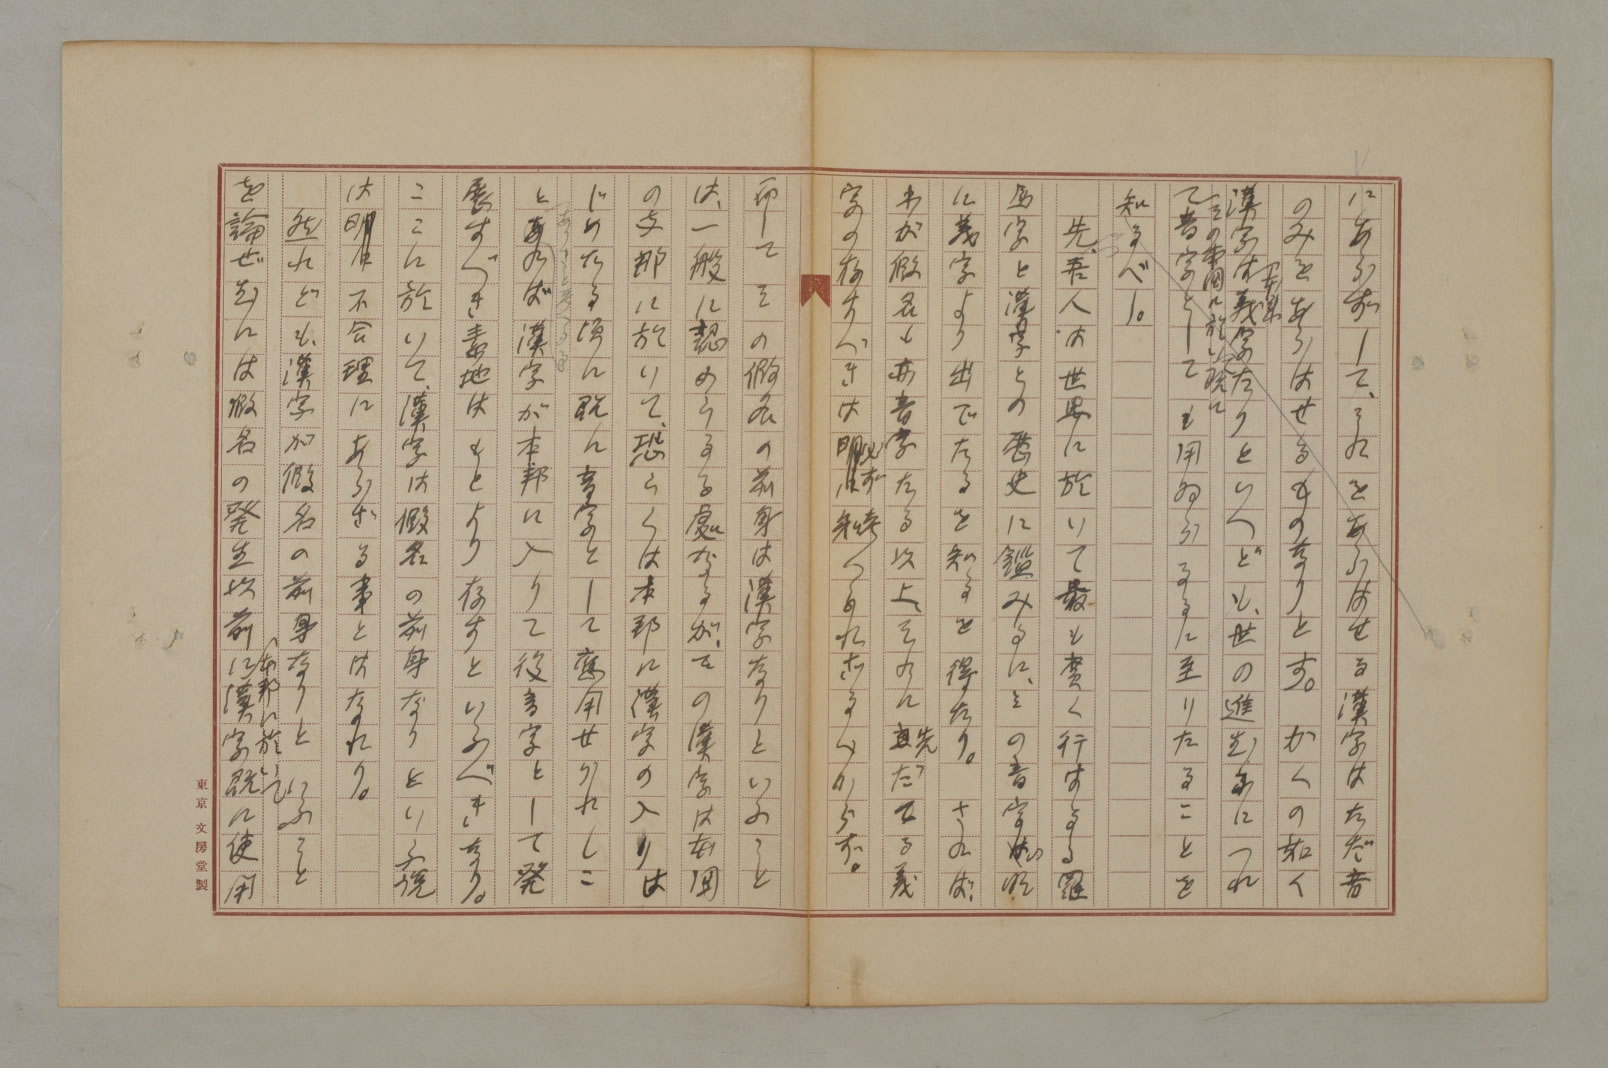 にあらずして、これをあらはせる漢字はたゞ音
のみをあらはせるものなりとす。かくの如く
漢字は義字たりといへども、世の進むにつれ
その本国に於い既に
て音字としても用ゐらるゝに至りたることを
知るべし。
先、吾人は世界に於いて最も広く行はるゝ羅
馬字と漢字との歴史に鑑みるに、その音字が
に義字より出でたるを知るを得たり。されば、
わが假名も亦音字たる以上、それに先だてる義
字の存すべきは必ず
而してその假名の前身は漢字なりといふこと
は、一般に認めらるゝ處なるが、その漢字は本国
の支那に於いて、恐らくは本邦に漢字の入りは
じめたる頃に既に音字として應用せられしこ
とあれば漢字が本邦に入りて後音字として発
展すべき素地はもとより存すといふべきなり。
ここに於いて、漢字は假名の前身なりといふ説
は明に不合理にあらざる事とはなれり。
然れども、漢字が假名の前身なりといふこと
本邦に於いて
を論ぜむには假名の発生以前に漢字既に使用
東京 文房堂製